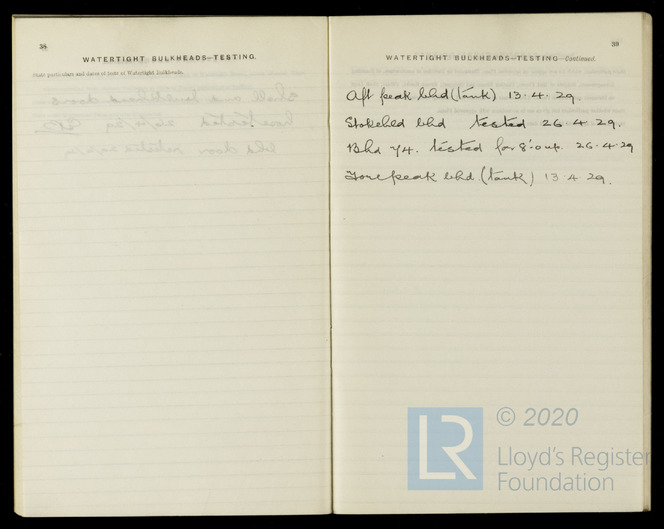 38
WATERTIGHT BULKHEADS—TESTING.
State particulars and dates of tests of Watertight Bulkheads.
39
WATERTIGHT BULKHEADS—TESTING—Continued.
Aft peak bhd (tank) 13.4.29.
Stokehld bhd tested 26.4.29.
Bhd 74. tested for 8' out. 26.4.29
Fore peak bhd. (tank) 13.4.29.
LR
© 2020
Lloyd's Register
Foundation